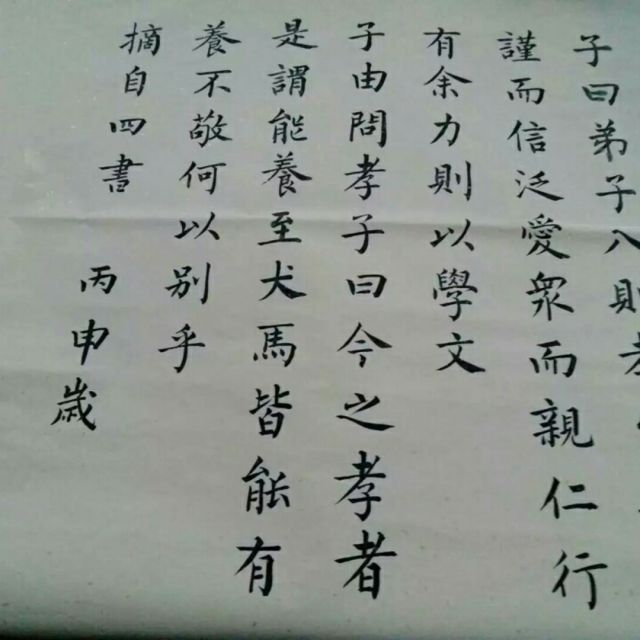 子曰弟子八則孝
謹而信泛愛衆而親仁行
有余力則以學文
子由問孝子曰今之孝者
是謂能養至犬馬皆能有
養不敬何以别乎
摘自四書
丙申歲